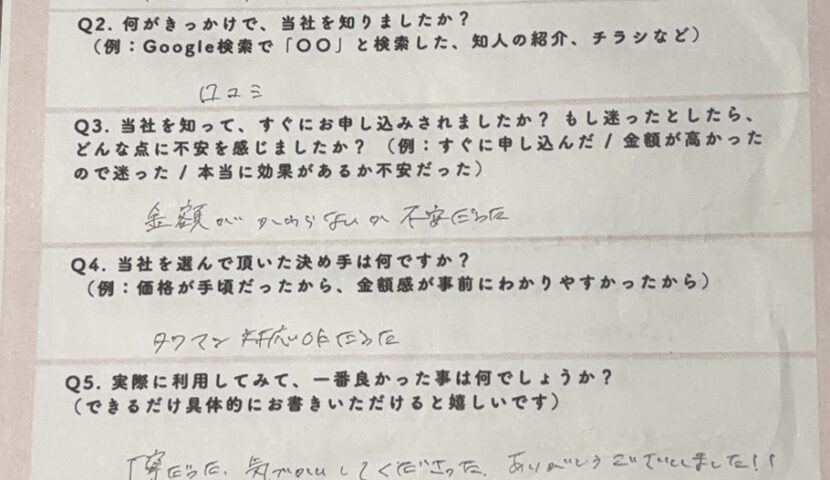 Q2. 何がきっかけで、当社を知りましたか？
（例：Google検索で「〇〇」と検索した、知人の紹介、チラシなど）
口コミ
Q3. 当社を知って、すぐにお申し込みされましたか？ もし迷ったとしたら、
どんな点に不安を感じましたか？ （例：すぐに申し込んだ / 金額が高かった
ので迷った / 本当に効果があるか不安だった）
金額がかわらないか不安だった
Q4. 当社を選んで頂いた決め手は何ですか？
（例：価格が手頃だったから、金額感が事前にわかりやすかったから）
タワマン対応OKだった
Q5. 実際に利用してみて、一番良かった事は何でしょうか？
（できるだけ具体的にお書きいただけると嬉しいです）
丁寧だった、してくださった、ありがとうございました！！